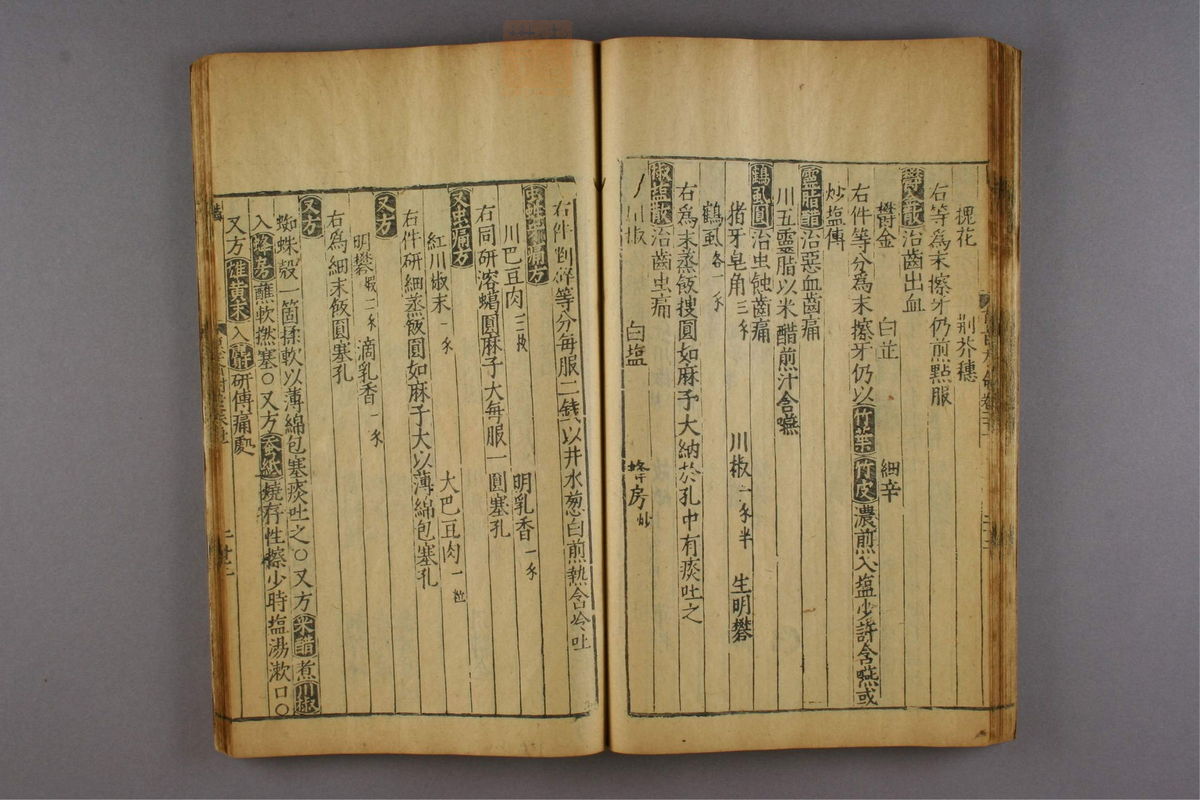 槐花 荆芥穗
右等為末擦牙仍煎點服
鬱金散治齒出血
鬱金 白芷 細辛
右件等分為末擦牙仍以竹葉竹皮濃煎入塩少許含嚥或
炒塩傅
靈脂醋治惡血齒痛
川五靈脂以米醋煎汁含嚥
鶴虱圓治虫蝕齒痛
猪牙皂角三 川椒二半 生明礬
鶴虱各一
右為末蒸飯搜圓如麻子大納於孔中有痰吐之
椒塩散治齒虫痛
川椒 白塩 蜂房炒
右件剉碎等分每服二錢以井水葱白煎熱含冷吐
川巴豆肉三 明乳香一
右同研溶蠟圓麻子大每服一圓塞孔
又虫痛方
紅川椒末一 大巴豆肉一粒
右件研細蒸飯圓如麻子大以薄綿包塞孔
又方
明礬二 滴乳香一
右為細末飯圓塞孔
又方
蜘蛛殼一箇揉軟以薄綿包塞痰吐之○又方米醋煮川椒
入蜂房蘸軟撚塞○又方蚕紙燒存性擦少時塩湯漱口○
又方雄黄末入研傅痛處